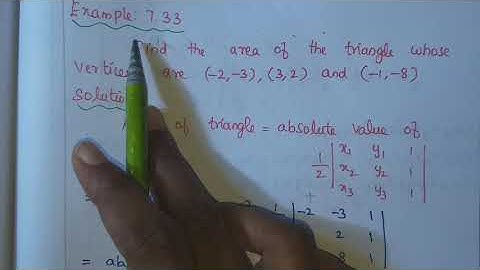 Example: 7.33
Find the area of the triangle whose
vertices are (-2,-3), (3,2) and (-1,-8)
Solution
of triangle = absolute value of
1/2 | x₁ y₁ 1 |
| x₂ y₂ 1 |
| x₃ y₃ 1 |
= | -2 -3 1 |
2 1 |
= ab 8 1 |